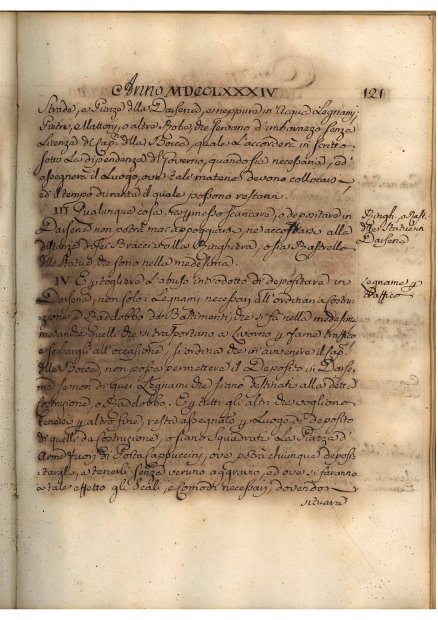 Anno MDCCLXXXIV
121
Strade, e Piazze della Darsena, e neppure in Acqua Legnami,
Pietre, Mattoni, o altre Robe, che servano d'imbarazzo senza
Licenza del Cap.º della Bocca, quale l'accorderà in scritto
sotto la dipendenza del Governo, quando sia necessaria, ed
assegnerà il Luogo, ove tali materie devono collocarsi,
ed il tempo durante il quale possono restarvi.
III Qualunque cosa permesso scaricare, o depositare in
Darsena non potrà mai appoggiarsi, ne accostarsi alla
distanza di sei Bracci alla Ringhiera, o sia Rastrello
delle Statue che sono nella medesima.
Ringh.
delle Statue in
Darsena
IV E per togliere l'abuso introdotto di depositare in
Darsena, non solo i Legnami necessarj all'ordinaria costru-
zione, e Raddobbo de Bastimenti, che si fa nella medesima
ma anche quelli che si trasportano a Livorno per farne traffico
e all'occasione, si ordina che in avvenire il Cap.º
della Bocca non possa permettere il Deposito in Darse-
na se non di quei Legnami che siano destinati alla detta
Costruzione, o Raddobbo. E per tutti gli altri che vogliono
tenere per altro fine, resta assegnato per Luogo di deposito
di quelli da costruzione, o siano Squadrati La Piazza
fuori di Porta Cappuccini, ove potrà chiunque deposi-
targli, e tenerli senza veruno aggravio, ed ove si faranno
a tale effetto gli Scali, e comodi necessarj, dovendo
situare
Legname per
traffico